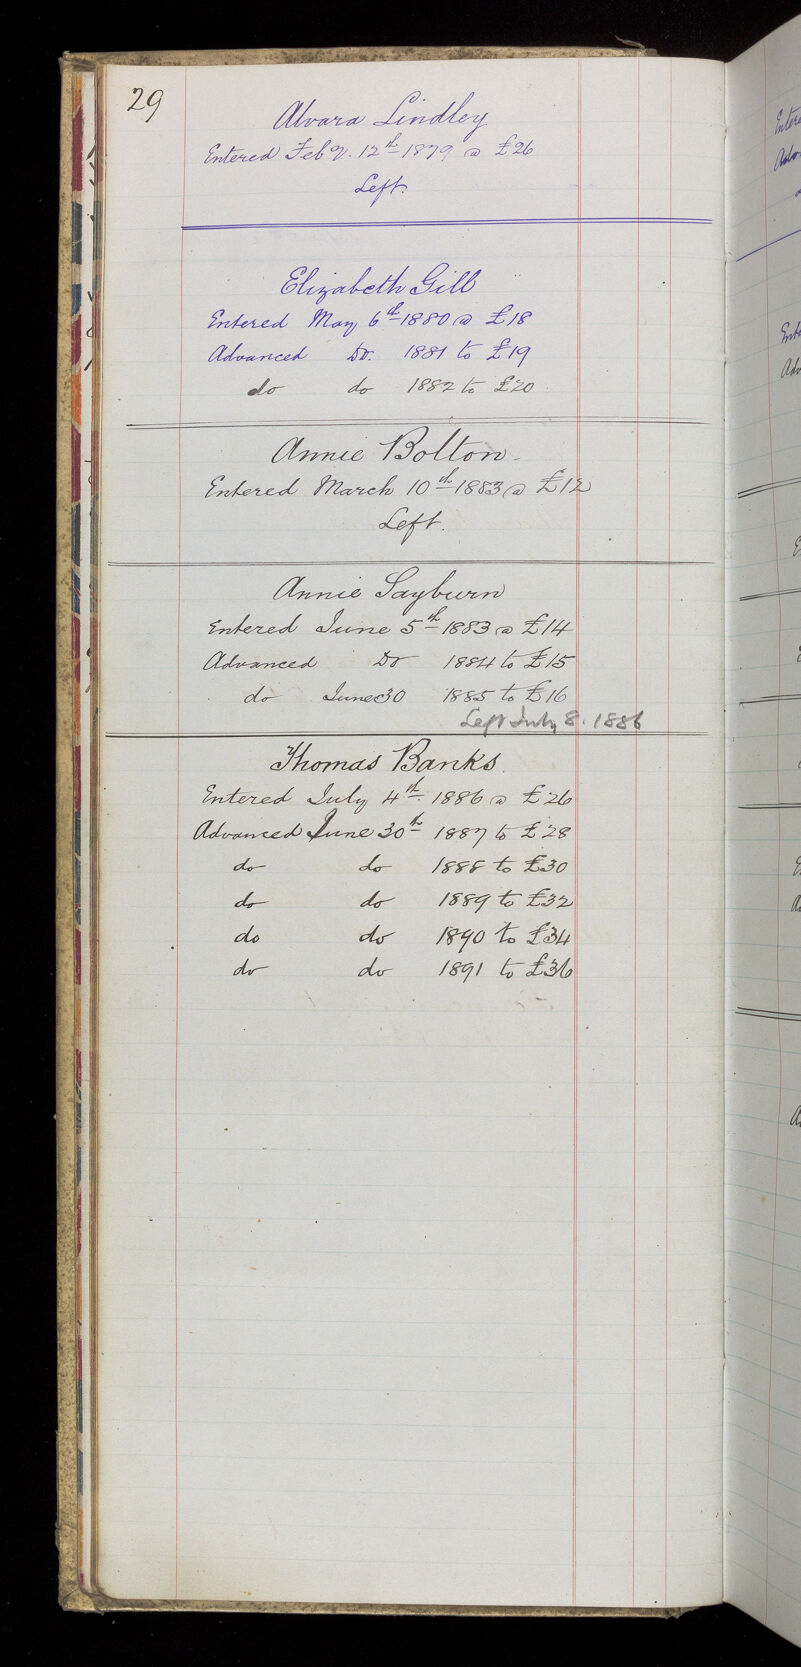 29
Alvara Lindley
Entered Feby. 12th 1879 @ £26
Left.
Elizabeth Gill
Entered May 6th 1880 @ £18
Advanced Do. 1881 to £19
do do 1882 to £20
Annie Bolton
Entered March 10th 1883 @ £12
Left.
Annie Sayburn
Entered June 5th 1883 @ £14
Advanced Do 1884 to £15
do June 30 1885 to £16
Left July 8. 1886
Thomas Banks
Entered July 4th 1886 @ £26
Advanced June 30th 1887 to £28
do do 1888 to £30
do do 1889 to £32
do do 1890 to £34
do do 1891 to £36